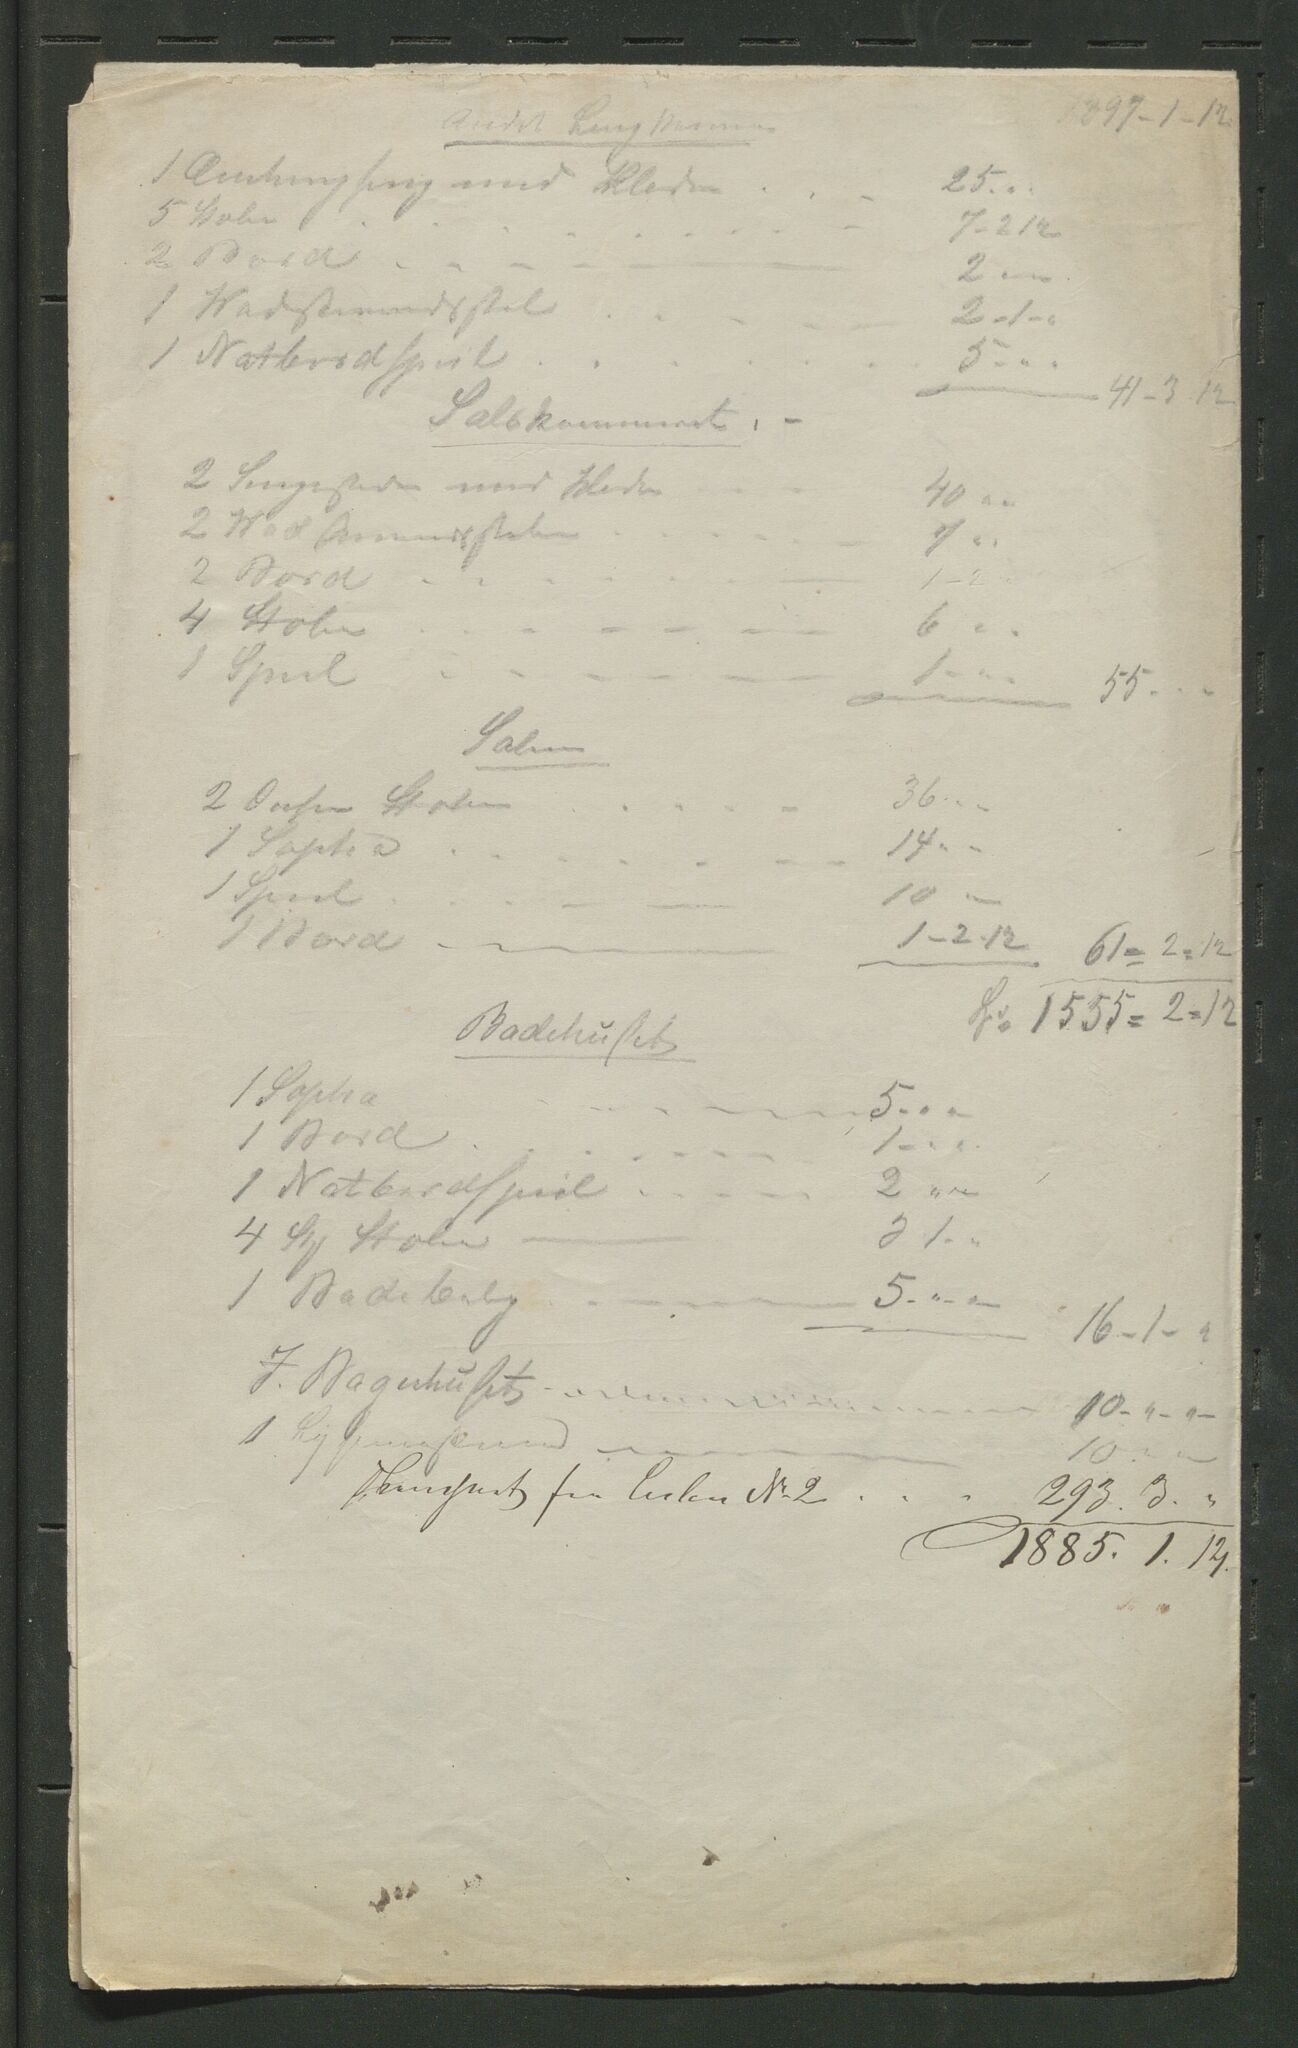 1397-1-12
Andet
1 med Klæder . . . 25 " "
5 Stole . . . 7-2 12
2 Bord . . . 2 " "
1 Vadskevandsstel . . . 2-1-"
1 Natbordspeil . . . 5 " "
41-3 12
Salskammeret
2 Sengesteder med Klæder 40 " "
2 Vadskevandsstelle . . . 7 " "
2 Bord . . . 1-2
4 Stole . . . 6 " "
1 Speil . . . 1 " "
55 " "
Salen
2 Stole . . . 36 " "
1 Sopha . . . 14 " "
1 Speil . . . 10 "
1 Bord 1-2-12
61=2=12
1555=2=12
Badehuset
1 Sopha 5 " "
1 Bord 1 " "
1 Natbordspeil 2 " "
4 Stole 3 1 "
1 Badebalg 5 " "
16-1-"
I Bagerhuset 10 " "
1 10 " "
Transport fra N. 2 . . . 293. 3. "
1885. 1. 12.